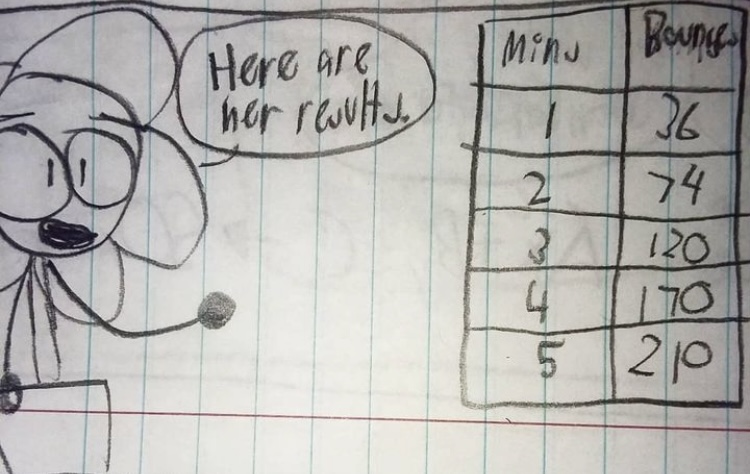 Here are
her results.
Mins Bounces
1 36
2 74
3 120
4 170
5 210